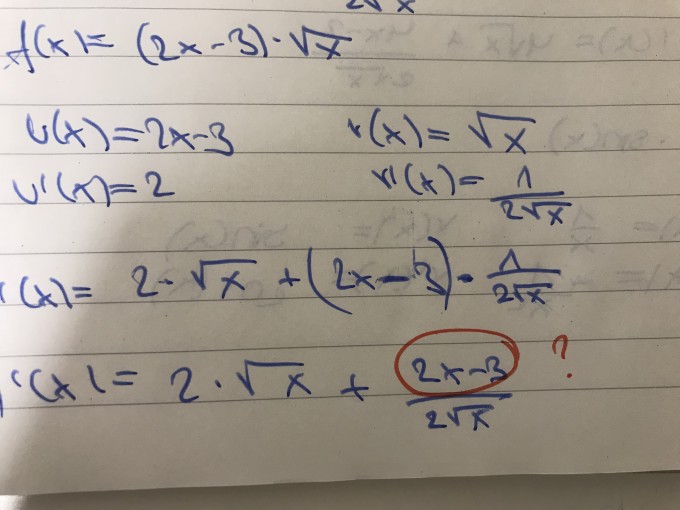 2√x
f(x) = (2x-3)·√x
u(x) = 2x-3 v(x) = √x
u'(x) = 2 v'(x) = 1/2√x
'(x) = 2·√x + (2x-3)·1/2√x
f'(x) = 2·√x + 2x-3/2√x ?